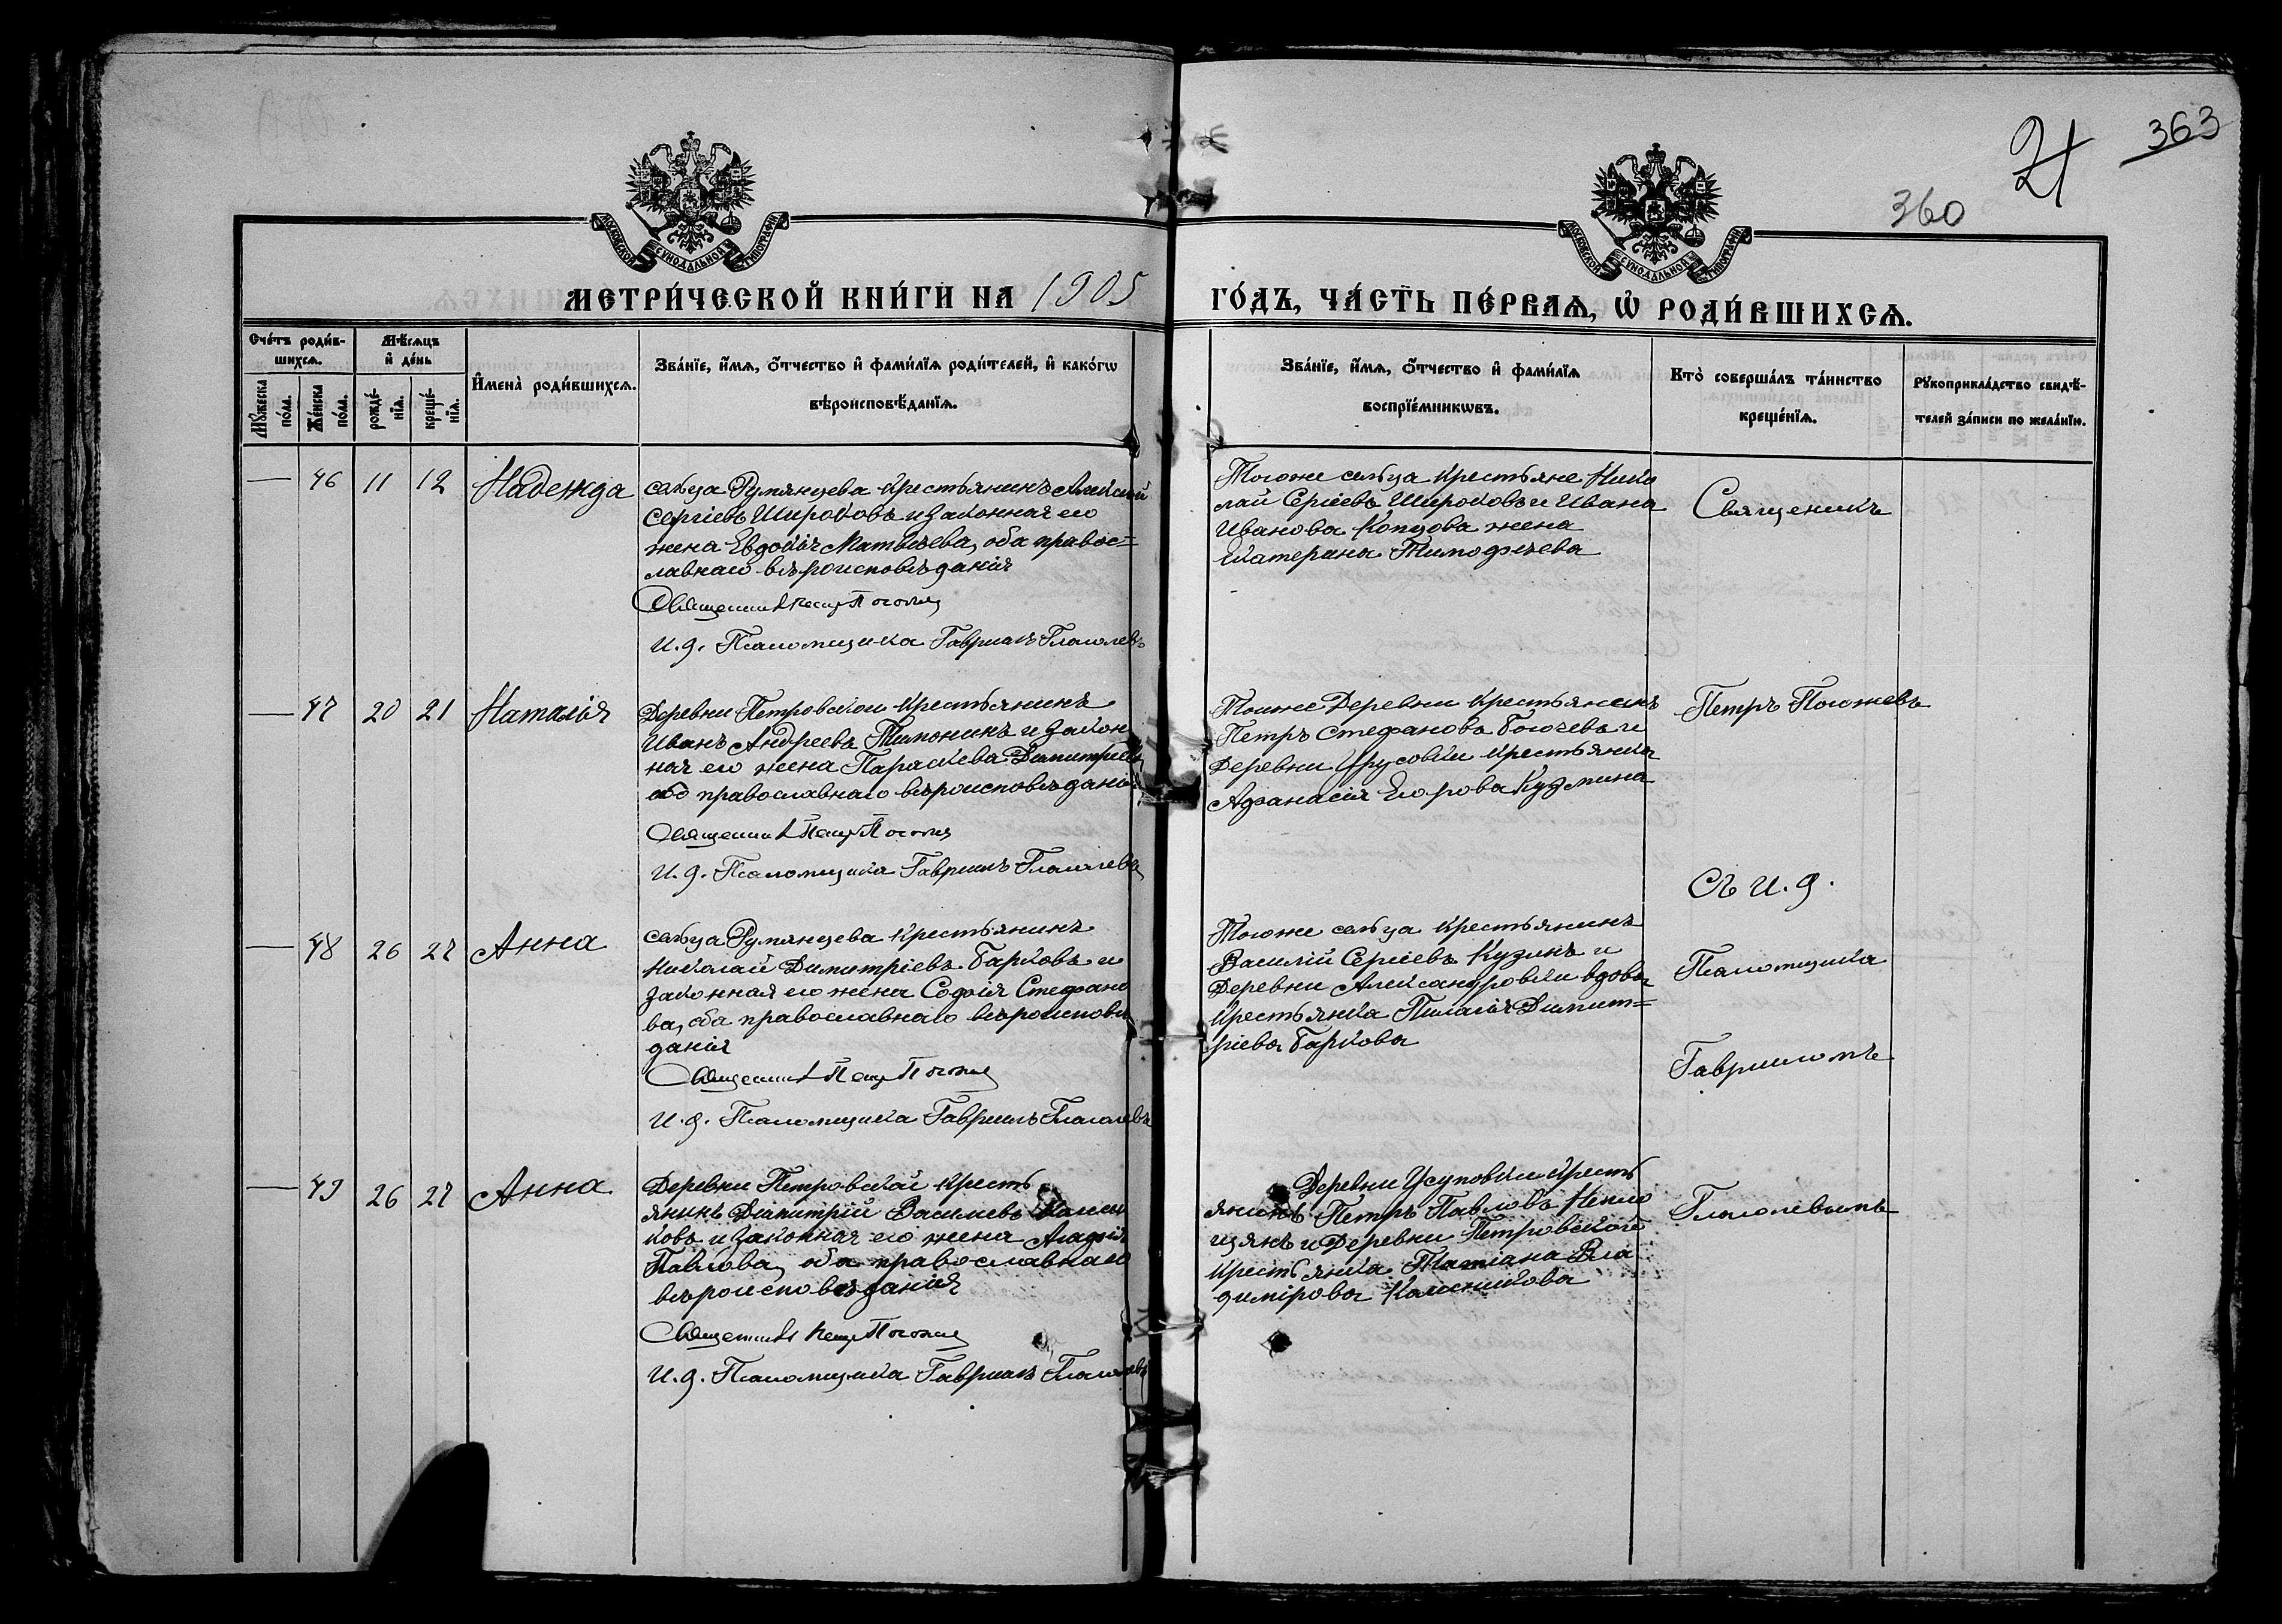 363
21
360
МОСКОВСКОЙ СѴНОДАЛЬНОЙ ТИПОГРАФІИ
МОСКОВСКОЙ СѴНОДАЛЬНОЙ ТИПОГРАФІИ
МЕТРИ́ЧЕСКОЙ КНИ́ГИ НА 1905
ГО́ДЪ, ЧА́СТЬ ПЕ́РВАѦ, Ѿ РОДИ́ВШИХСѦ.
Сче́тъ роди́в-
шихсѧ.
Мꙋ́жеска
по́ла.
Же́нска
по́ла.
Мѣ́сѧцъ
и҆ де́нь
рожде́-
нїѧ.
креще́-
нїѧ.
И҆мена̀ роди́вшихсѧ.
Зва́нїе, и҆́мѧ, о҆́тчество и҆ фами́лїѧ роди́телей, и҆ како́гѡ
вѣроисповѣ́данїѧ.
Зва́нїе, и҆́мѧ, о҆́тчество и҆ фами́лїѧ
воспрїе́мникѡвъ.
Кто̀ соверша́лъ та́инство
креще́нїѧ.
Рꙋкоприкла́дство свидѣ́-
телей за́писи по жела́нїю.
— 46 11 12 Надежда
сельца Румянцева крестьянинъ Алексей
Сергіевъ Широковъ и законная его
жена Евдокія Матвѣева, оба правос=
лавнаго вѣроисповѣданія
Священникъ Петръ Погожев
И. д. Псаломщика Гавриилъ Глаголевъ
Тогоже сельца крестьяне Нико
лай Сергіевъ Широковъ и Ивана
Иванова Копцова жена
Екатерина Тимофеева
Священикъ
— 47 20 21 Наталія
Деревни Петровской крестьянинъ
Иванъ Андреевъ Тимонинъ и закон
ная его жена Параскева Димитріев
оба православнаго вѣроисповѣдані
Священникъ Петръ Погожев
И. д. Псаломщика Гавриилъ Глаголевъ
Тойже Деревни крестьянинъ
Петръ Стефановъ Богачевъ и
Деревни крестьянка
Афанасія Егорова Кузмина
Петръ Погожевъ
Съ И. д.
— 48 26 27 Анна
сельца Румянцева крестьянинъ
Николай Димитріевъ Барковъ и
законная его жена Софія Стефано
ва, оба православнаго вѣроисповѣ
данія
Священникъ Петръ Погожев
И. д. Псаломщика Гавриилъ Глаголевъ
Тогоже сельца крестьянинъ
Василій Сергіевъ Кузинъ и
Деревни Александровки вдова
крестьянка Пелагія Димит=
ріева Баркова
Псаломщика
Гавриломъ
— 49 26 27 Анна
Деревни Петровской кресть
янинъ Димитрій Василіевъ Калени
ковъ и законная его жена Агафія
Павлова, оба православнаго
вѣроисповѣданія
Священникъ Петръ Погожев
И. д. Псаломщика Гавриилъ Глаголевъ
Деревни Юсуповки кресть
янинъ Петръ Павловъ
и Деревни Петровской
крестьянка Татіана Вла
димірова Каленикова
Глаголевымъ